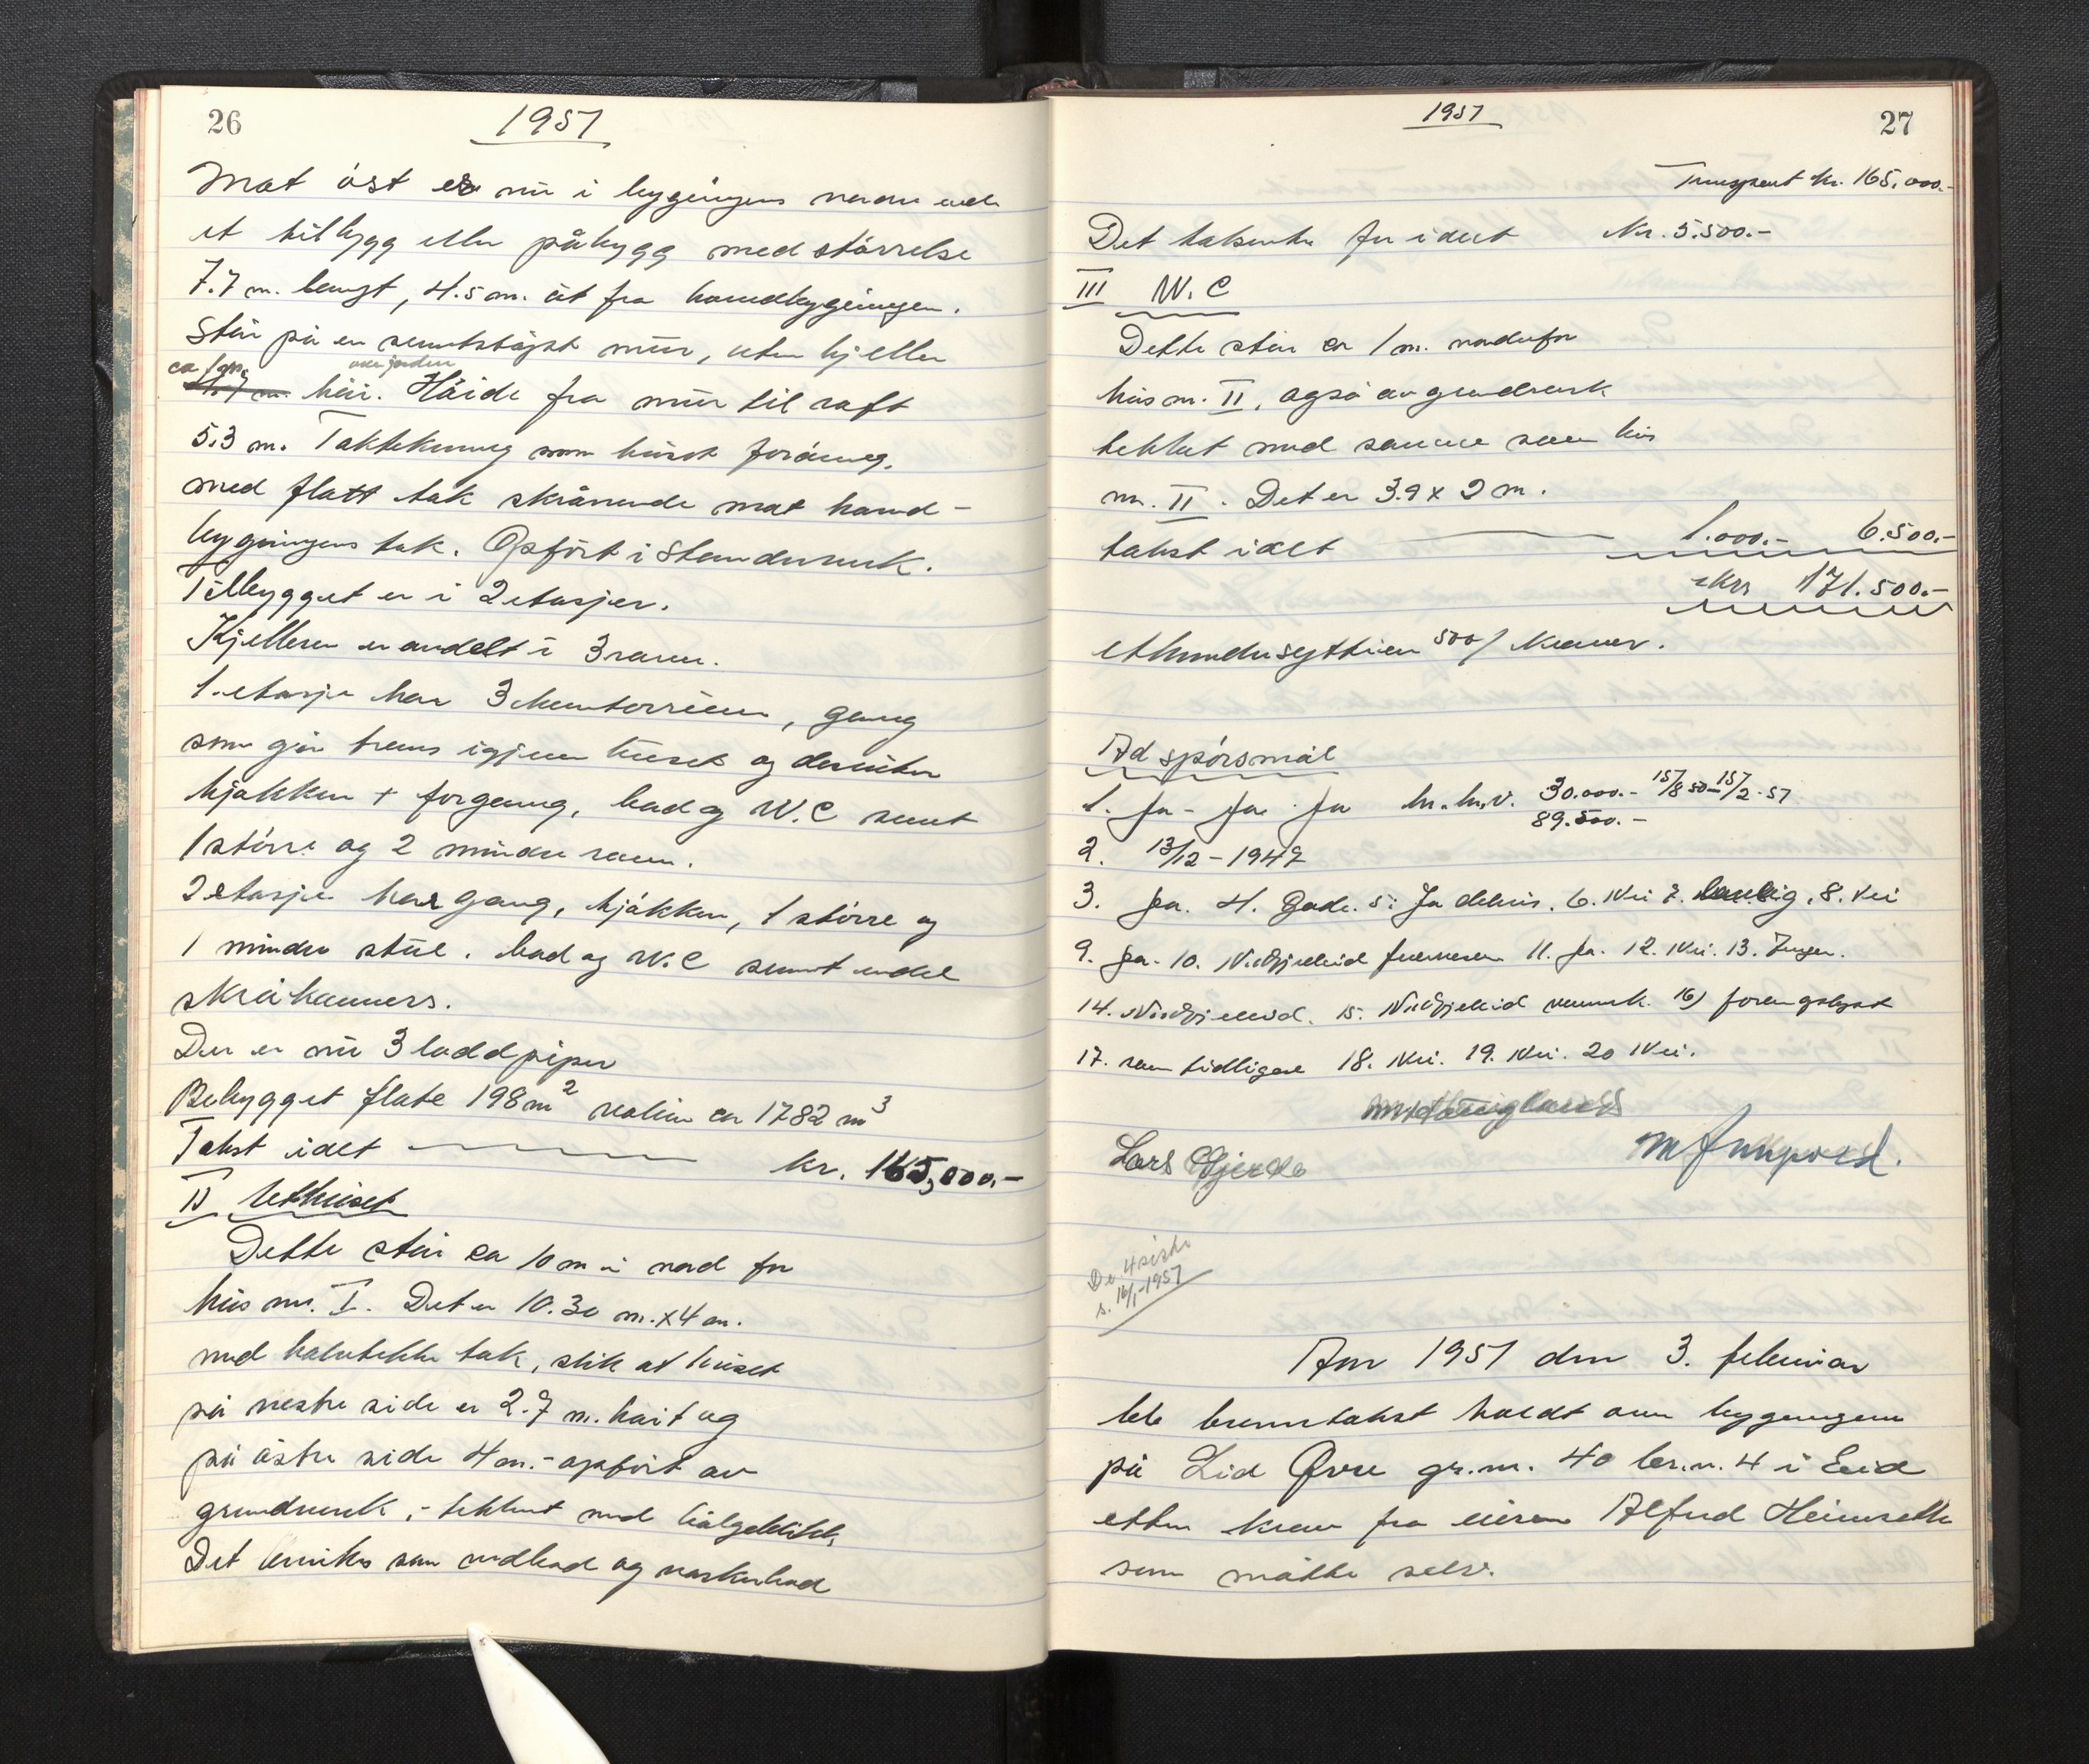 26
1951
Mot øst er nu i bygningens nordre ende
et tilbygg eller påbygg med størrelse
7.7 m. langt, 4.5 m. ut fra hovedbygningen.
Står på en sementstøpt mur, uten kjeller
ca 1 m. over jorden
høi. Høide fra mur til raft
5.3 m. Taktekning som huset forøvrig,
med flatt tak skrånende mot hoved-
bygningens tak. Opført i Stenderverk.
Tilbygget er i 2 etasjer.
Kjelleren er avdelt i 3 rom.
1. etasje har 3 kontorrum, gang
som går tvers igjennem huset og desuten
kjøkken + forgang, bad og W.C samt
1 større og 2 mindre rom.
2 etasje har gang, kjøkken, 1 større og
1 mindre stue. bad og W.C samt endel
skråkammers.
Der er nu 3 loddpiper
Bebygget flate 198 m² volum ca 1782 m³
Takst i alt kr. 165,000.-
II Uthuset
Dette står ca 10 m i nord for
hus nr. I. Det er 10.30 m. x 4 m.
med halvtekke tak, slik at huset
på vestre side er 2.7 m. høit og
på østre side 4 m. - opført av
grindverk, - tekket med bølgeblikk,
Det brukes som vedbod og vaskebod
1951
27
Transport kr. 165,000.-
Det takseres for i alt Kr. 5.500.-
III W.C
Dette står ca 1 m. nordenfor
hus nr. II, også av grindverk
tekket med samme som hus
nr. II. Det er 3.9 x 2 m.
takst i alt 1.000.- 6.500.-
skr 171.500.-
500/ Kroner.
Ad spørsmål
1. Ja - Ja - Ja h.h.v. 30.000.- 15/8 50 - 15/2 - 51
89.500.-
2. 13/12 - 1949
3. Ja. 4. Gode. 5: Ja delvis. 6. Nei 7. 8. Nei
9. Ja. 10. Vedkjennid 11. Ja. 12. Nei. 13. Ingen.
14. 15. 16)
17. som tidligere 18. Nei. 19. Nei. 20 Nei.
Lars Gjerde
De 4 siste
s. 16/1-1957
Aar 1951 den 3. februar
ble branntakst holdt over bygningene
på Lid Øvre gr.nr. 40 br.n. 4 i Eid
etter krav fra eieren Alfred
som møtte selv.